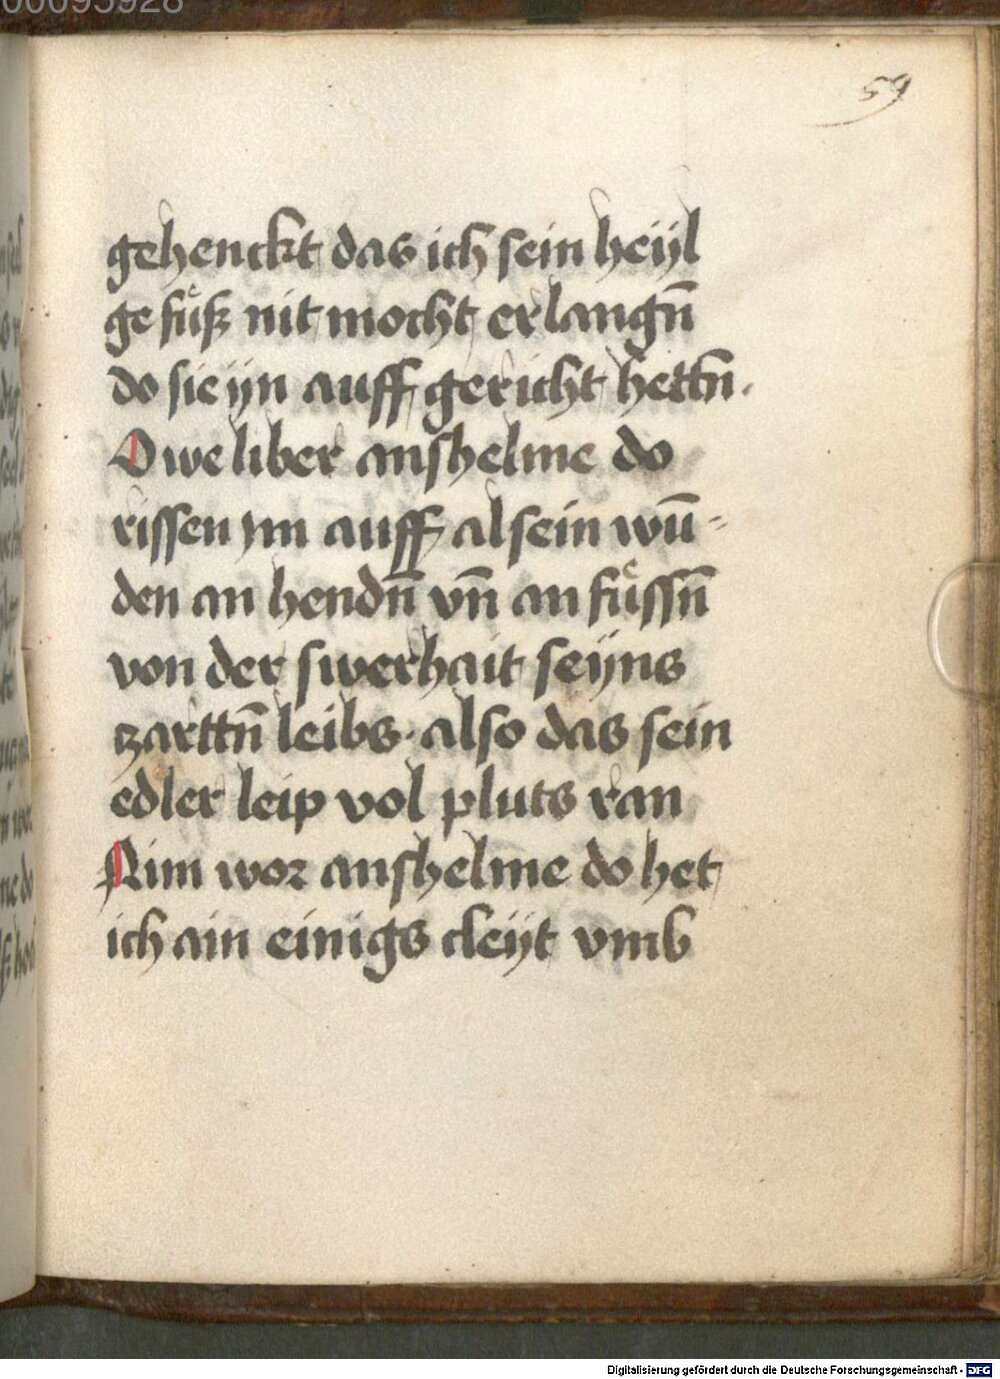 00095928
59
gehenckt das ich sein heijl
ge fuͤß nit mocht erlangn̄
do sie ijn auff gericht hettn̄.
O we liber anshelme do
rissen ym auff al sein wū-
den an hendn̄ vn̄ an fuͤssn̄
von der swerhait seijns
zarttn̄ leibs. also das sein
edler leip vol pluts ran
Nim wor anshelme do het
ich ain einigs cleijt vmb
Digitalisierung gefördert durch die Deutsche Forschungsgemeinschaft - DFG